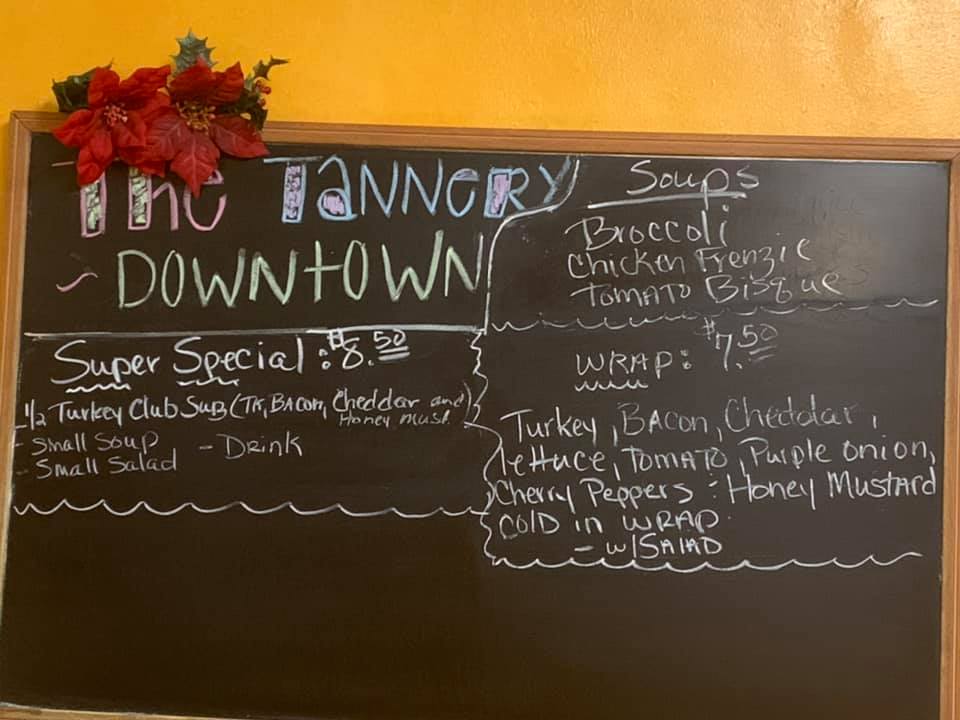 The Tannery
~ Downtown
Super Special: $8.50
1/2 Turkey Club Sub (TK, Bacon, Cheddar and Honey Must.)
- Small Soup
- Small Salad
- Drink
Soups
Broccoli
Chicken Frenzie
Tomato Bisque
Wrap: $7.50
Turkey, Bacon, Cheddar,
lettuce, Tomato, Purple onion,
Cherry Peppers : Honey Mustard
Cold in wrap.
- w/Salad